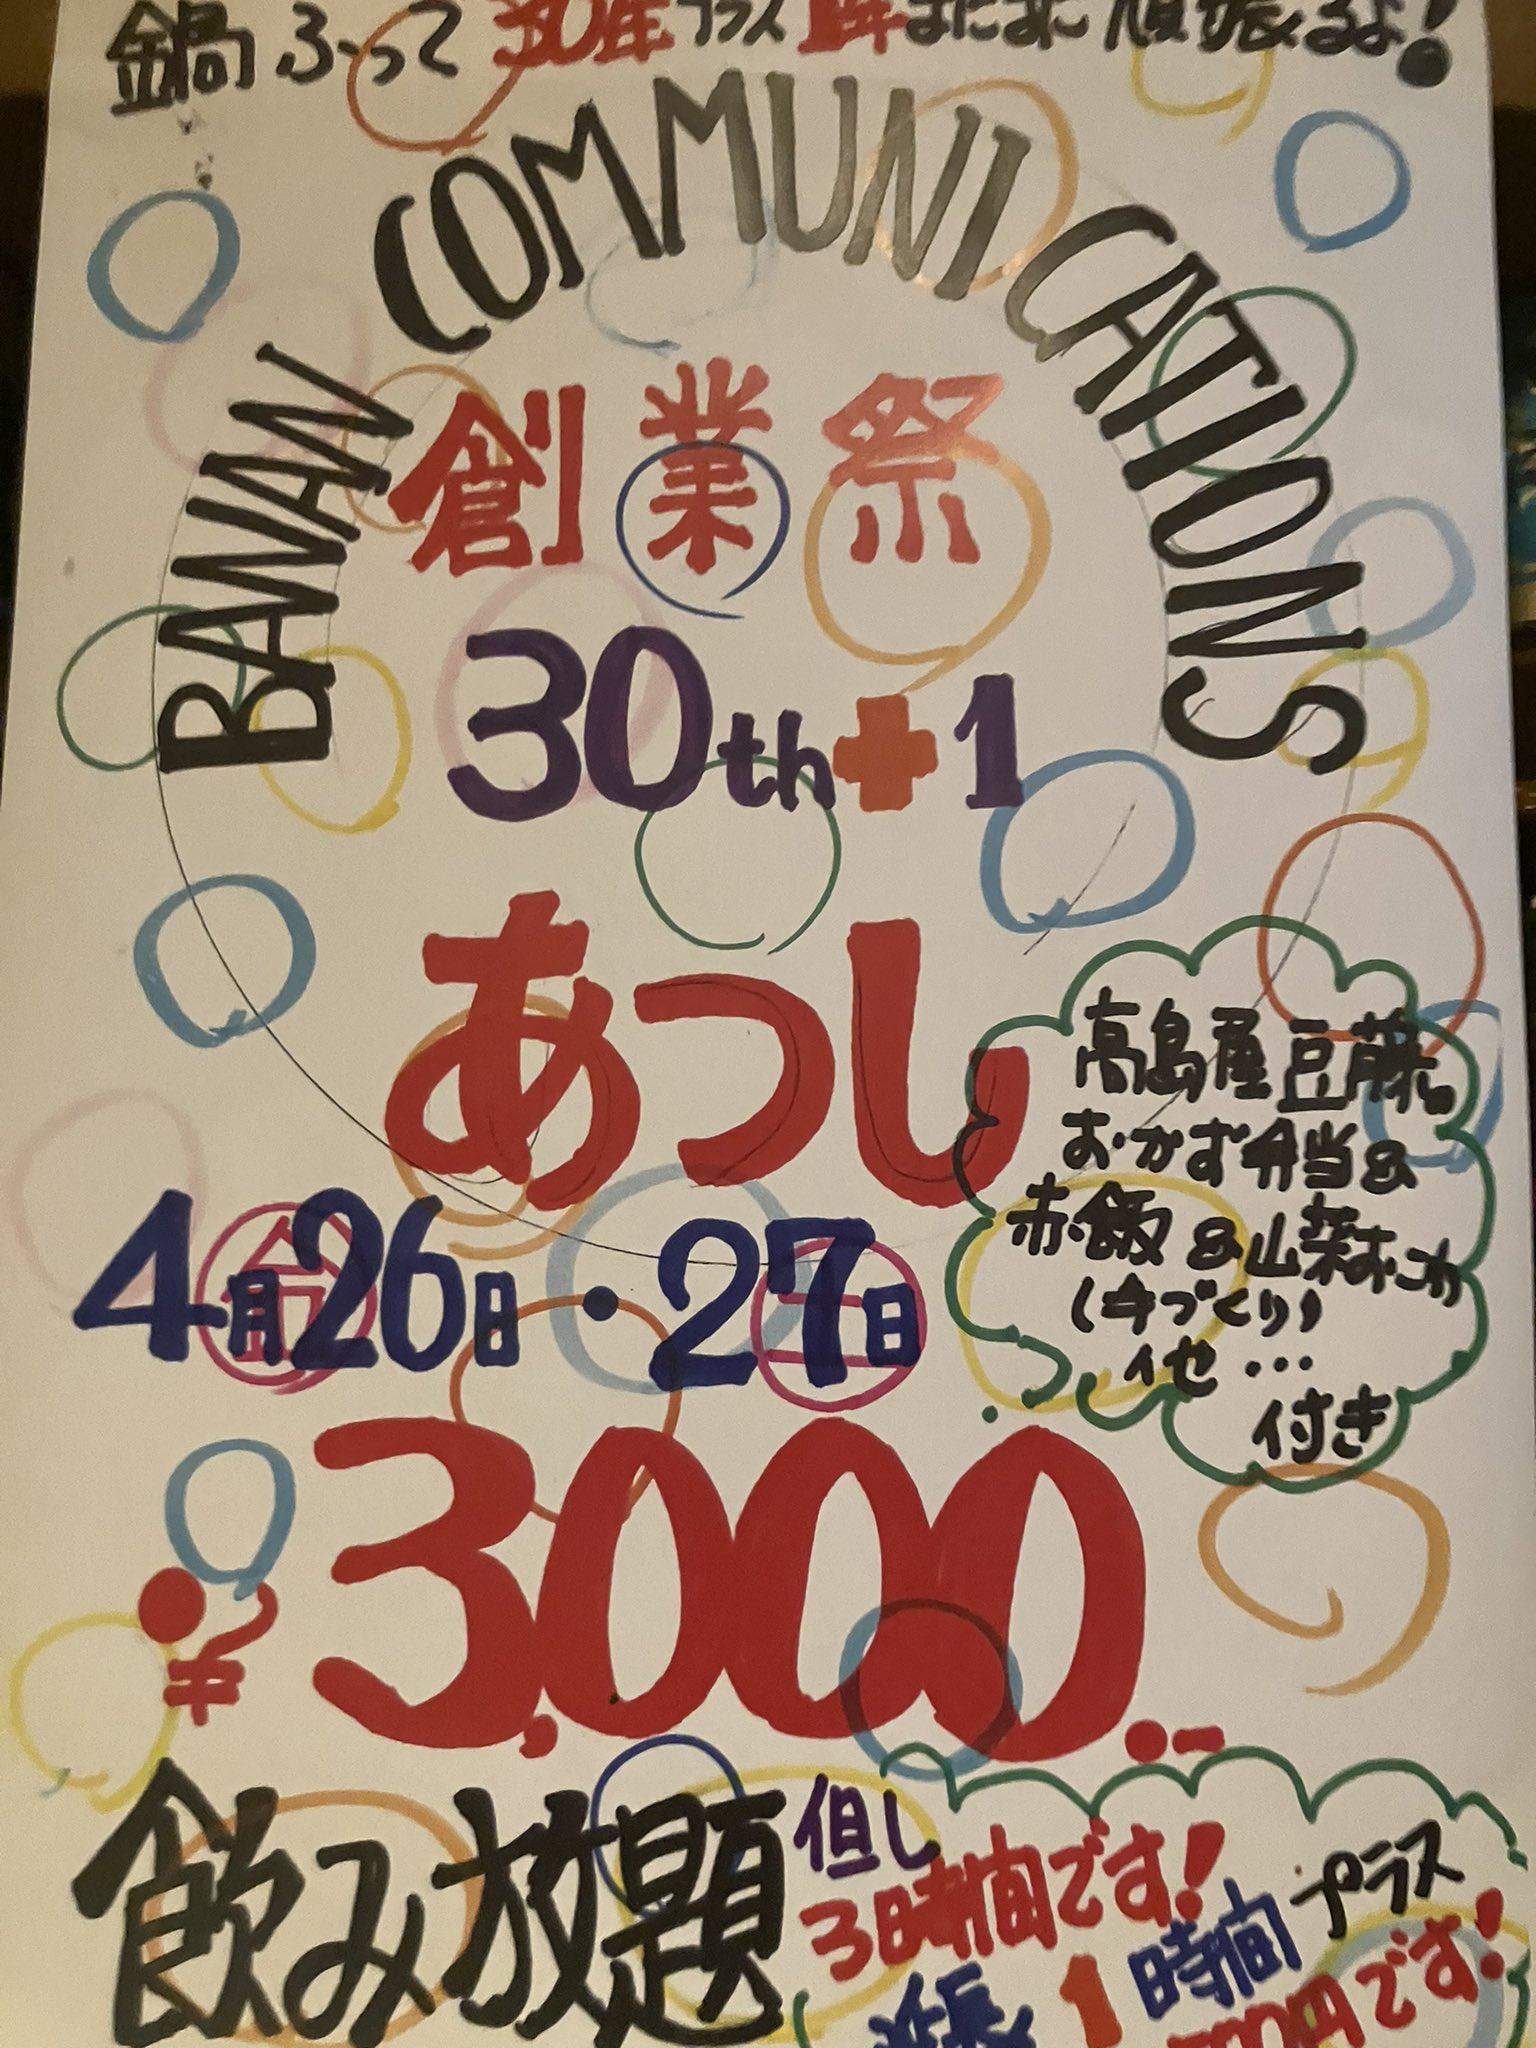 鍋ふって30年プラス1年まだまだ頑張るよ!
BANAN COMMUNICATIONS
創業祭
30th+1
あつし
高島屋豆藤の
おかず弁当&
赤飯&山菜おこわ
(手づくり)
イセ…
付き
4月26日㊎・27日㊏
¥3,000.-
飲み放題
但し
3時間です!
延長1時間プラス
500円です!